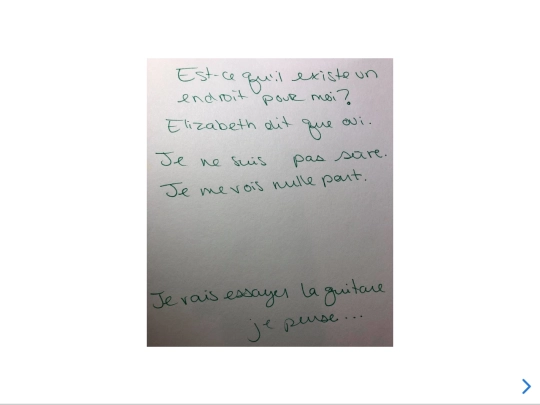 Est-ce qu'il existe un
endroit pour moi?
Elizabeth dit que oui.
Je ne suis pas sûre.
Je me vois nulle part.
Je vais essayer la guitare
je pense...